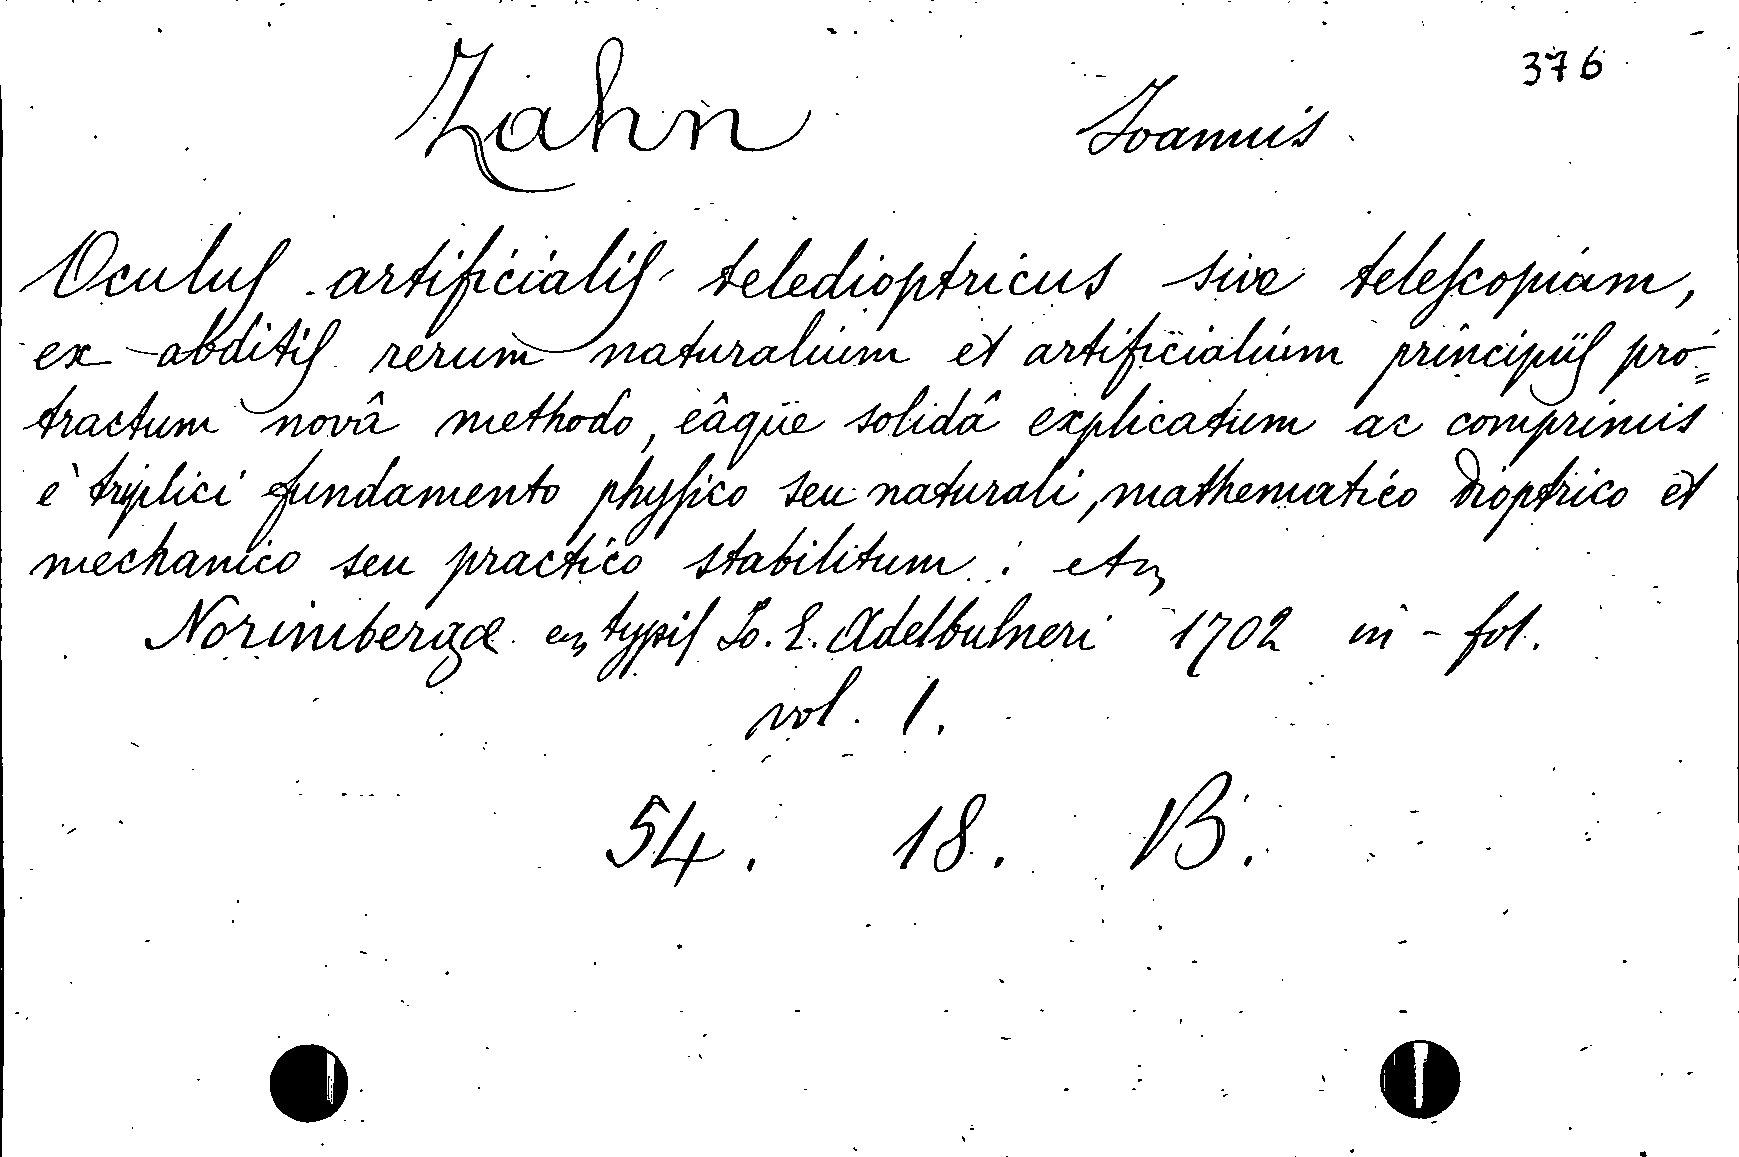 376
Zahn Ioannis
Oculuſ artificialiſ teledioptricus sive teleſcopiam,
ex abditiſ rerum naturalium et artificialium principiiſ pro=
tractum novâ methodo, eâque solidâ explicatum ac comprimis
è triplici fundamento phyſico seu naturali, mathematico dioptrico et
mechanico seu practico stabilitum : etc
Norimbergæ ex typiſ Io. E. Adelbulneri 1702 in-fol.
vol. 1.
54. 18. B.